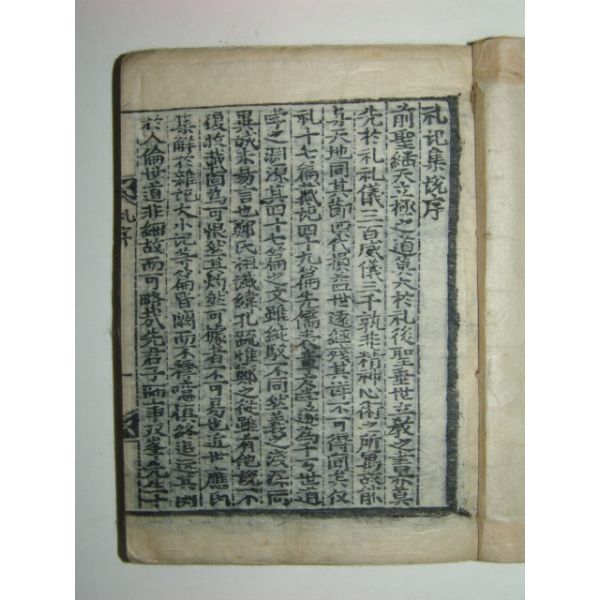 礼記集說序
前聖継天立極之道莫大於礼後聖垂世立敎之書亦莫
先於礼礼儀三百威儀三千孰非精神心術之所寓故能
与天地同其節四代損益世遠経殘其詳不可得聞矣仅
礼十七篇戴記四十九篇先儒表章庸學遂為千万世道
学之淵源其四十七篇之文雖純駁不同然義之浅深同
異誠未易言也鄭氏祖讖緯孔疏惟鄭之從雖有他說不
復收載固為可恨然其灼然可據者不可易也近世應氏
集解於雜記大小記等篇皆闕而不釋噫慎終追遠其関
於人倫世道非細故而可略哉先君子師事双峯先生十
礼序